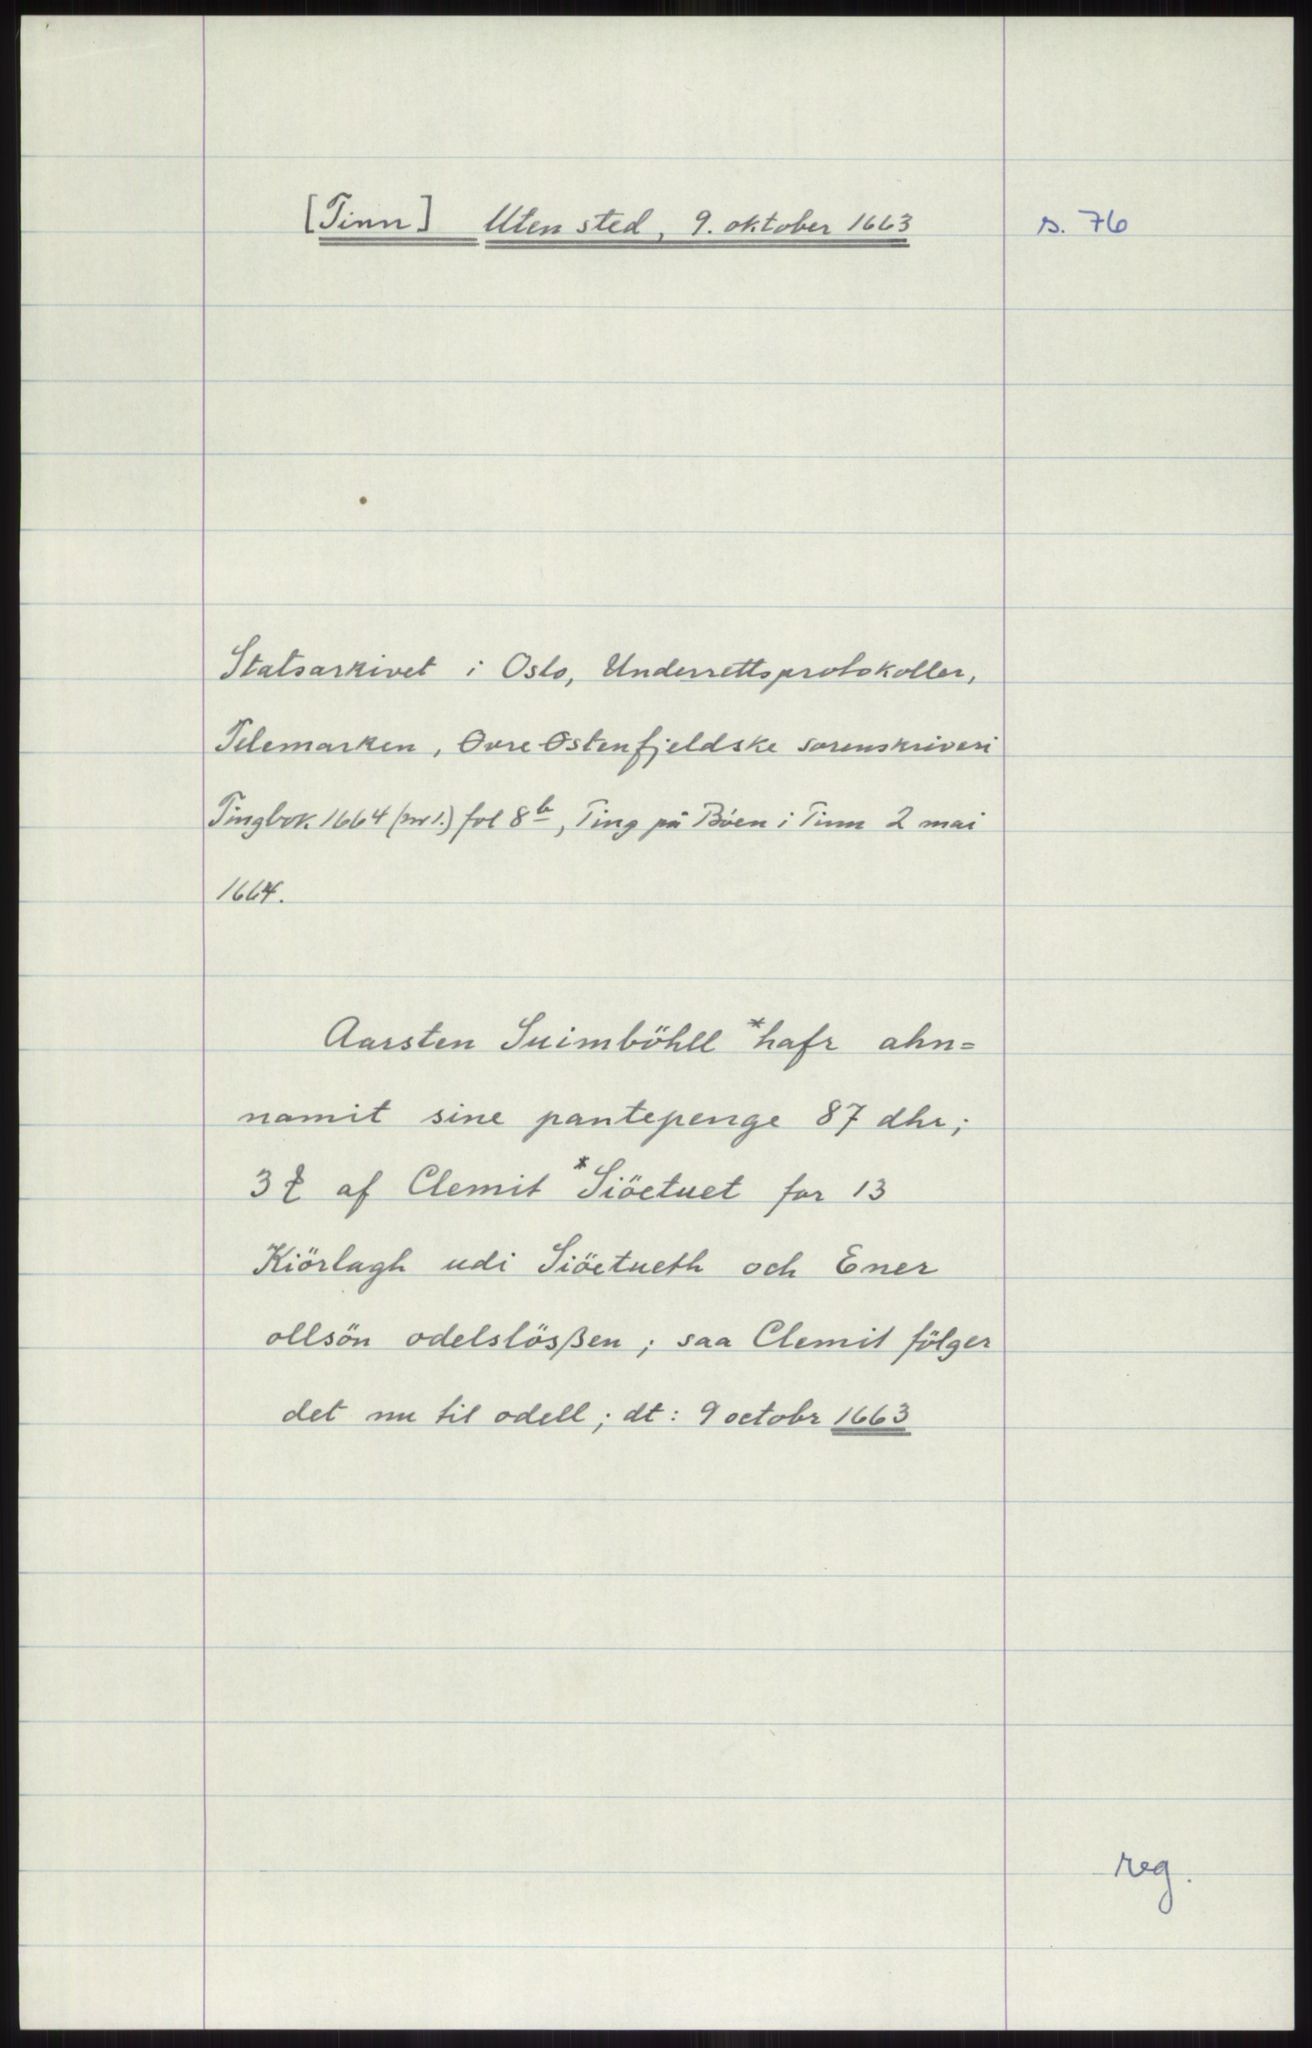 [Tinn] Uten sted, 9. oktober 1663
s. 76
Statsarkivet i Oslo, Underrettsprotokoller,
Telemarken, Øvre Østenfjeldske sorenskriveri
Tingbok 1664 (nr 1.) fol 8b, Ting på Böen i Tinn 2 mai
1664.
Aarsten Suimböhll *hafr ahn=
namit sine pantepenge 87 dhr;
3 af Clemit *Siöetuet for 13
Kiörlagh udi Siöetueth och Ener
ollsön odelslösßen; saa Clemit fölger
det nu til odell; dt: 9 octobr 1663
reg.